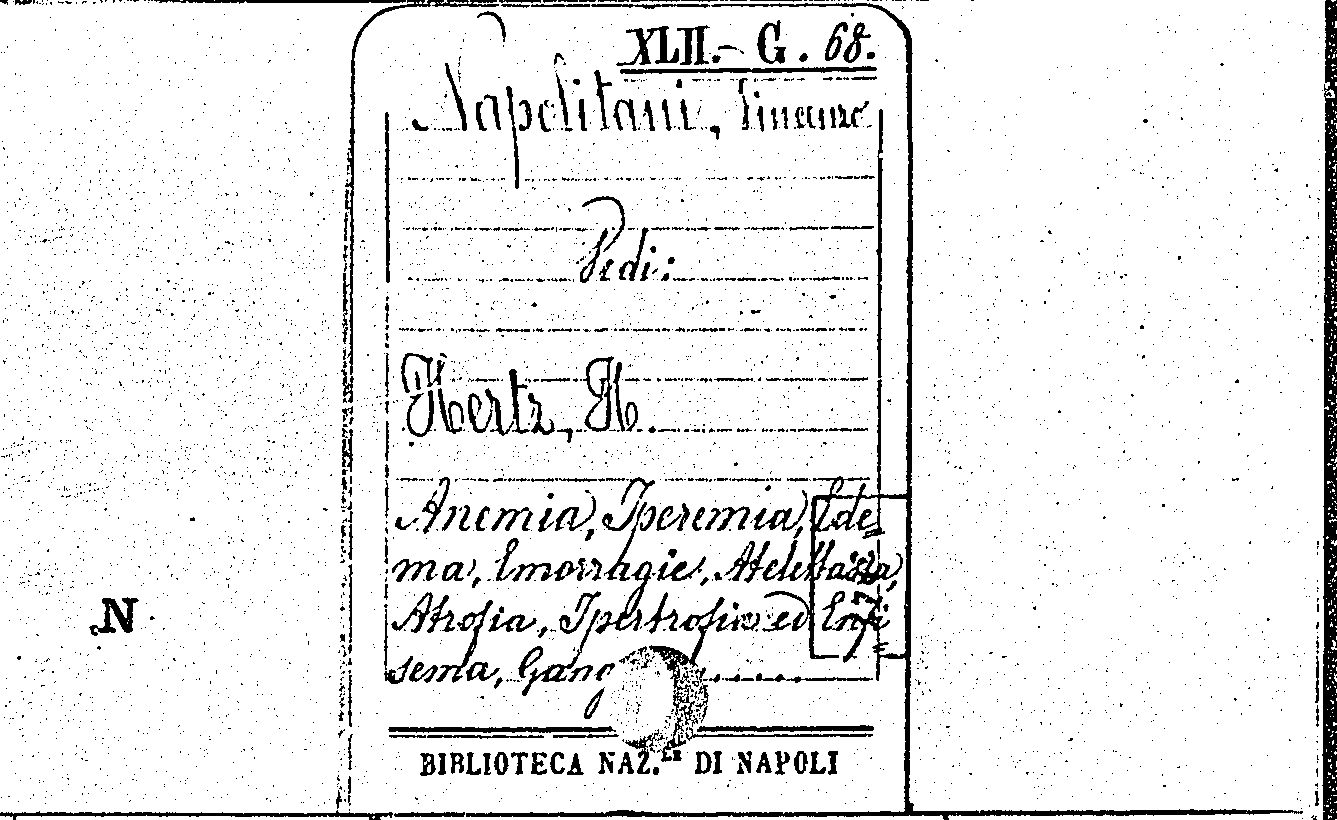 XLII.- G. 68.
Napolitani,
Vedi:
Hertz, H.
Anemia, Iperemia, Ede
ma, Emorragie, Atelettasia,
Atrofia, Ipertrofia ed Enfi
sema, Gang......
N
BIBLIOTECA NAZ.LE DI NAPOLI